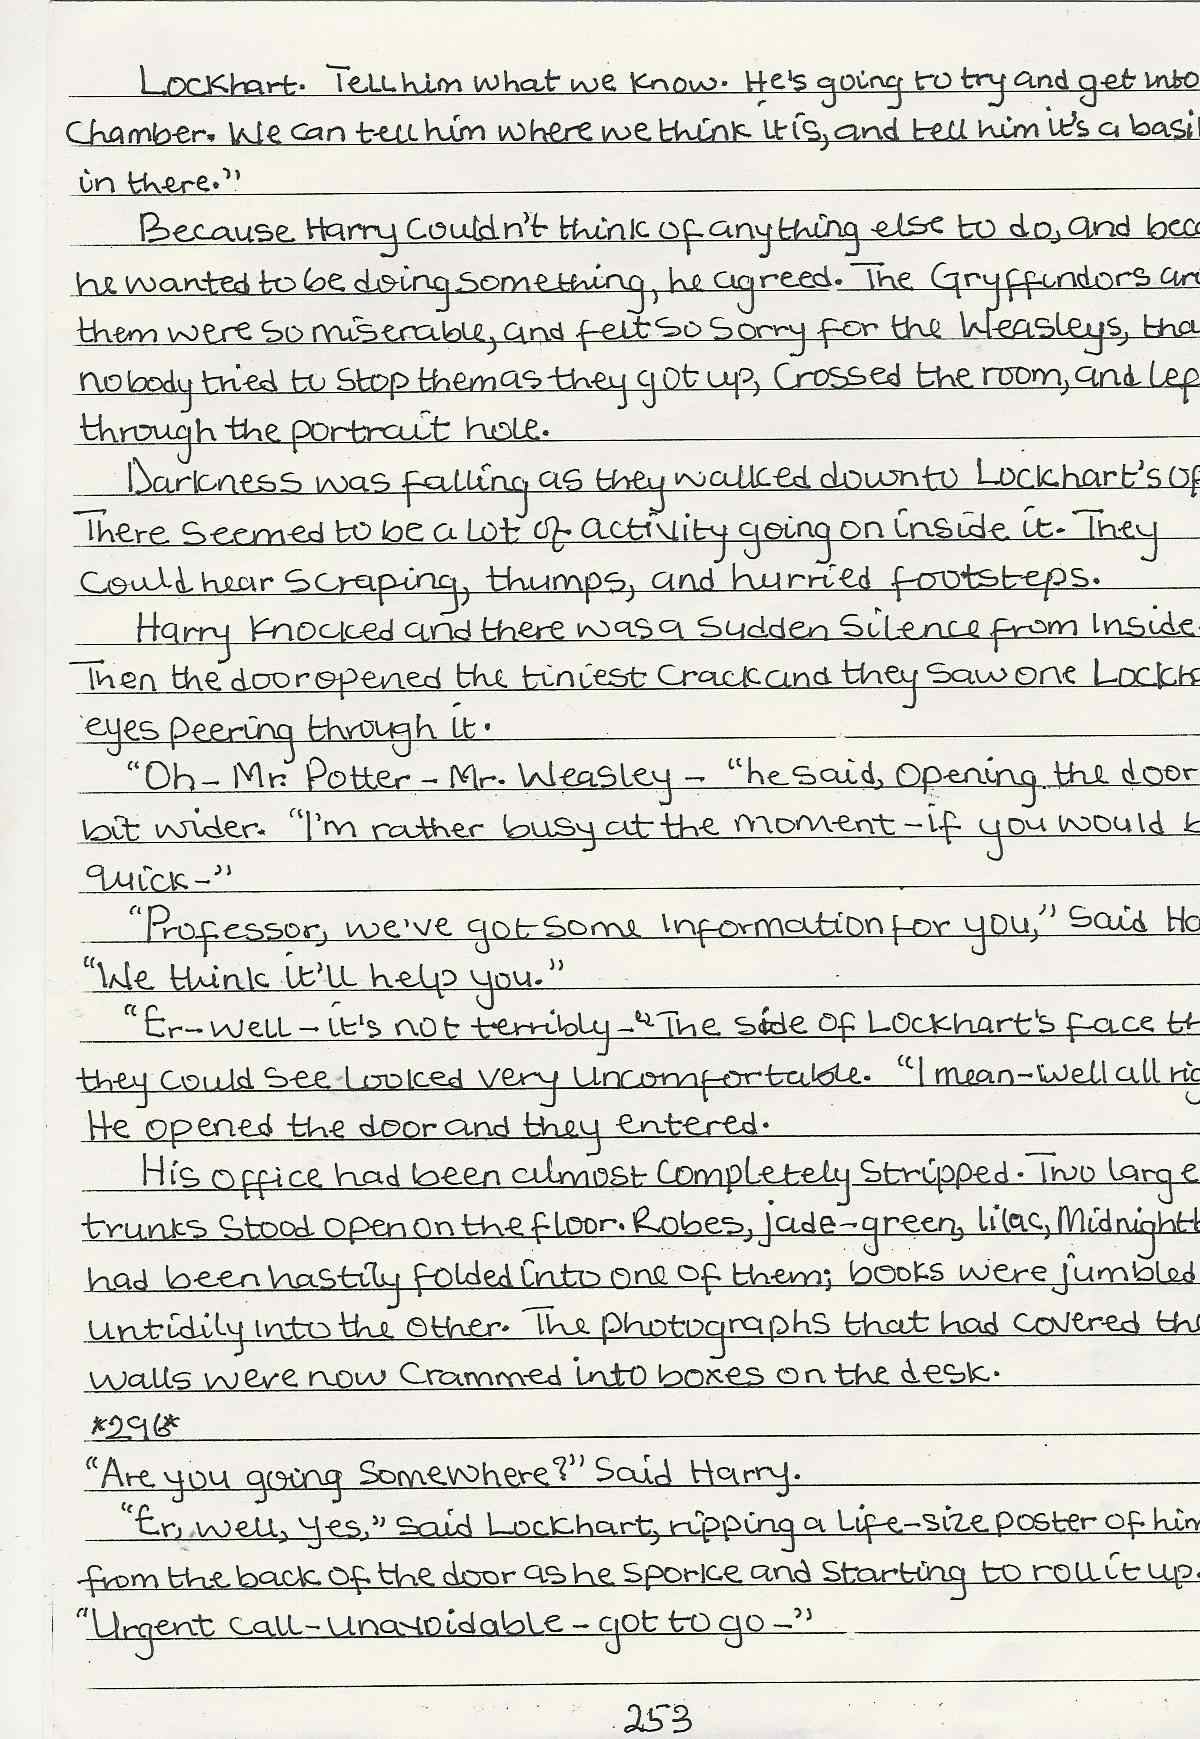 Lockhart. Tell him what we know. He's going to try and get into
Chamber. We can tell him where we think it is, and tell him it's a basil
in there."
Because Harry couldn't think of anything else to do, and beca
he wanted to be doing something, he agreed. The Gryffindors aro
them were so miserable, and felt so sorry for the Weasleys, tha
nobody tried to stop them as they got up, crossed the room, and lep
through the portrait hole.
Darkness was falling as they walked down to Lockhart's of
There seemed to be a lot of activity going on inside it. They
could hear scraping, thumps, and hurried footsteps.
Harry knocked and there was a sudden silence from inside.
Then the door opened the tiniest crack and they saw one Lockha
eyes peering through it.
"Oh – Mr. Potter – Mr. Weasley – "he said, opening the door
bit wider. "I'm rather busy at the moment – if you would b
quick –"
"Professor, we've got some information for you," said Ha
"We think it'll help you."
"Er – well – it's not terribly –" The side of Lockhart's face th
they could see looked very uncomfortable. "I mean – well all rig
He opened the door and they entered.
His office had been almost completely stripped. Two large
trunks stood open on the floor. Robes, jade-green, lilac, Midnightb
had been hastily folded into one of them; books were jumbled
untidily into the other. The photographs that had covered the
walls were now crammed into boxes on the desk.
*296*
"Are you going somewhere?" said Harry.
"Er, well, yes," said Lockhart, ripping a life-size poster of him
from the back of the door as he sporke and starting to roll it up.
"Urgent call – unavoidable – got to go –"
253